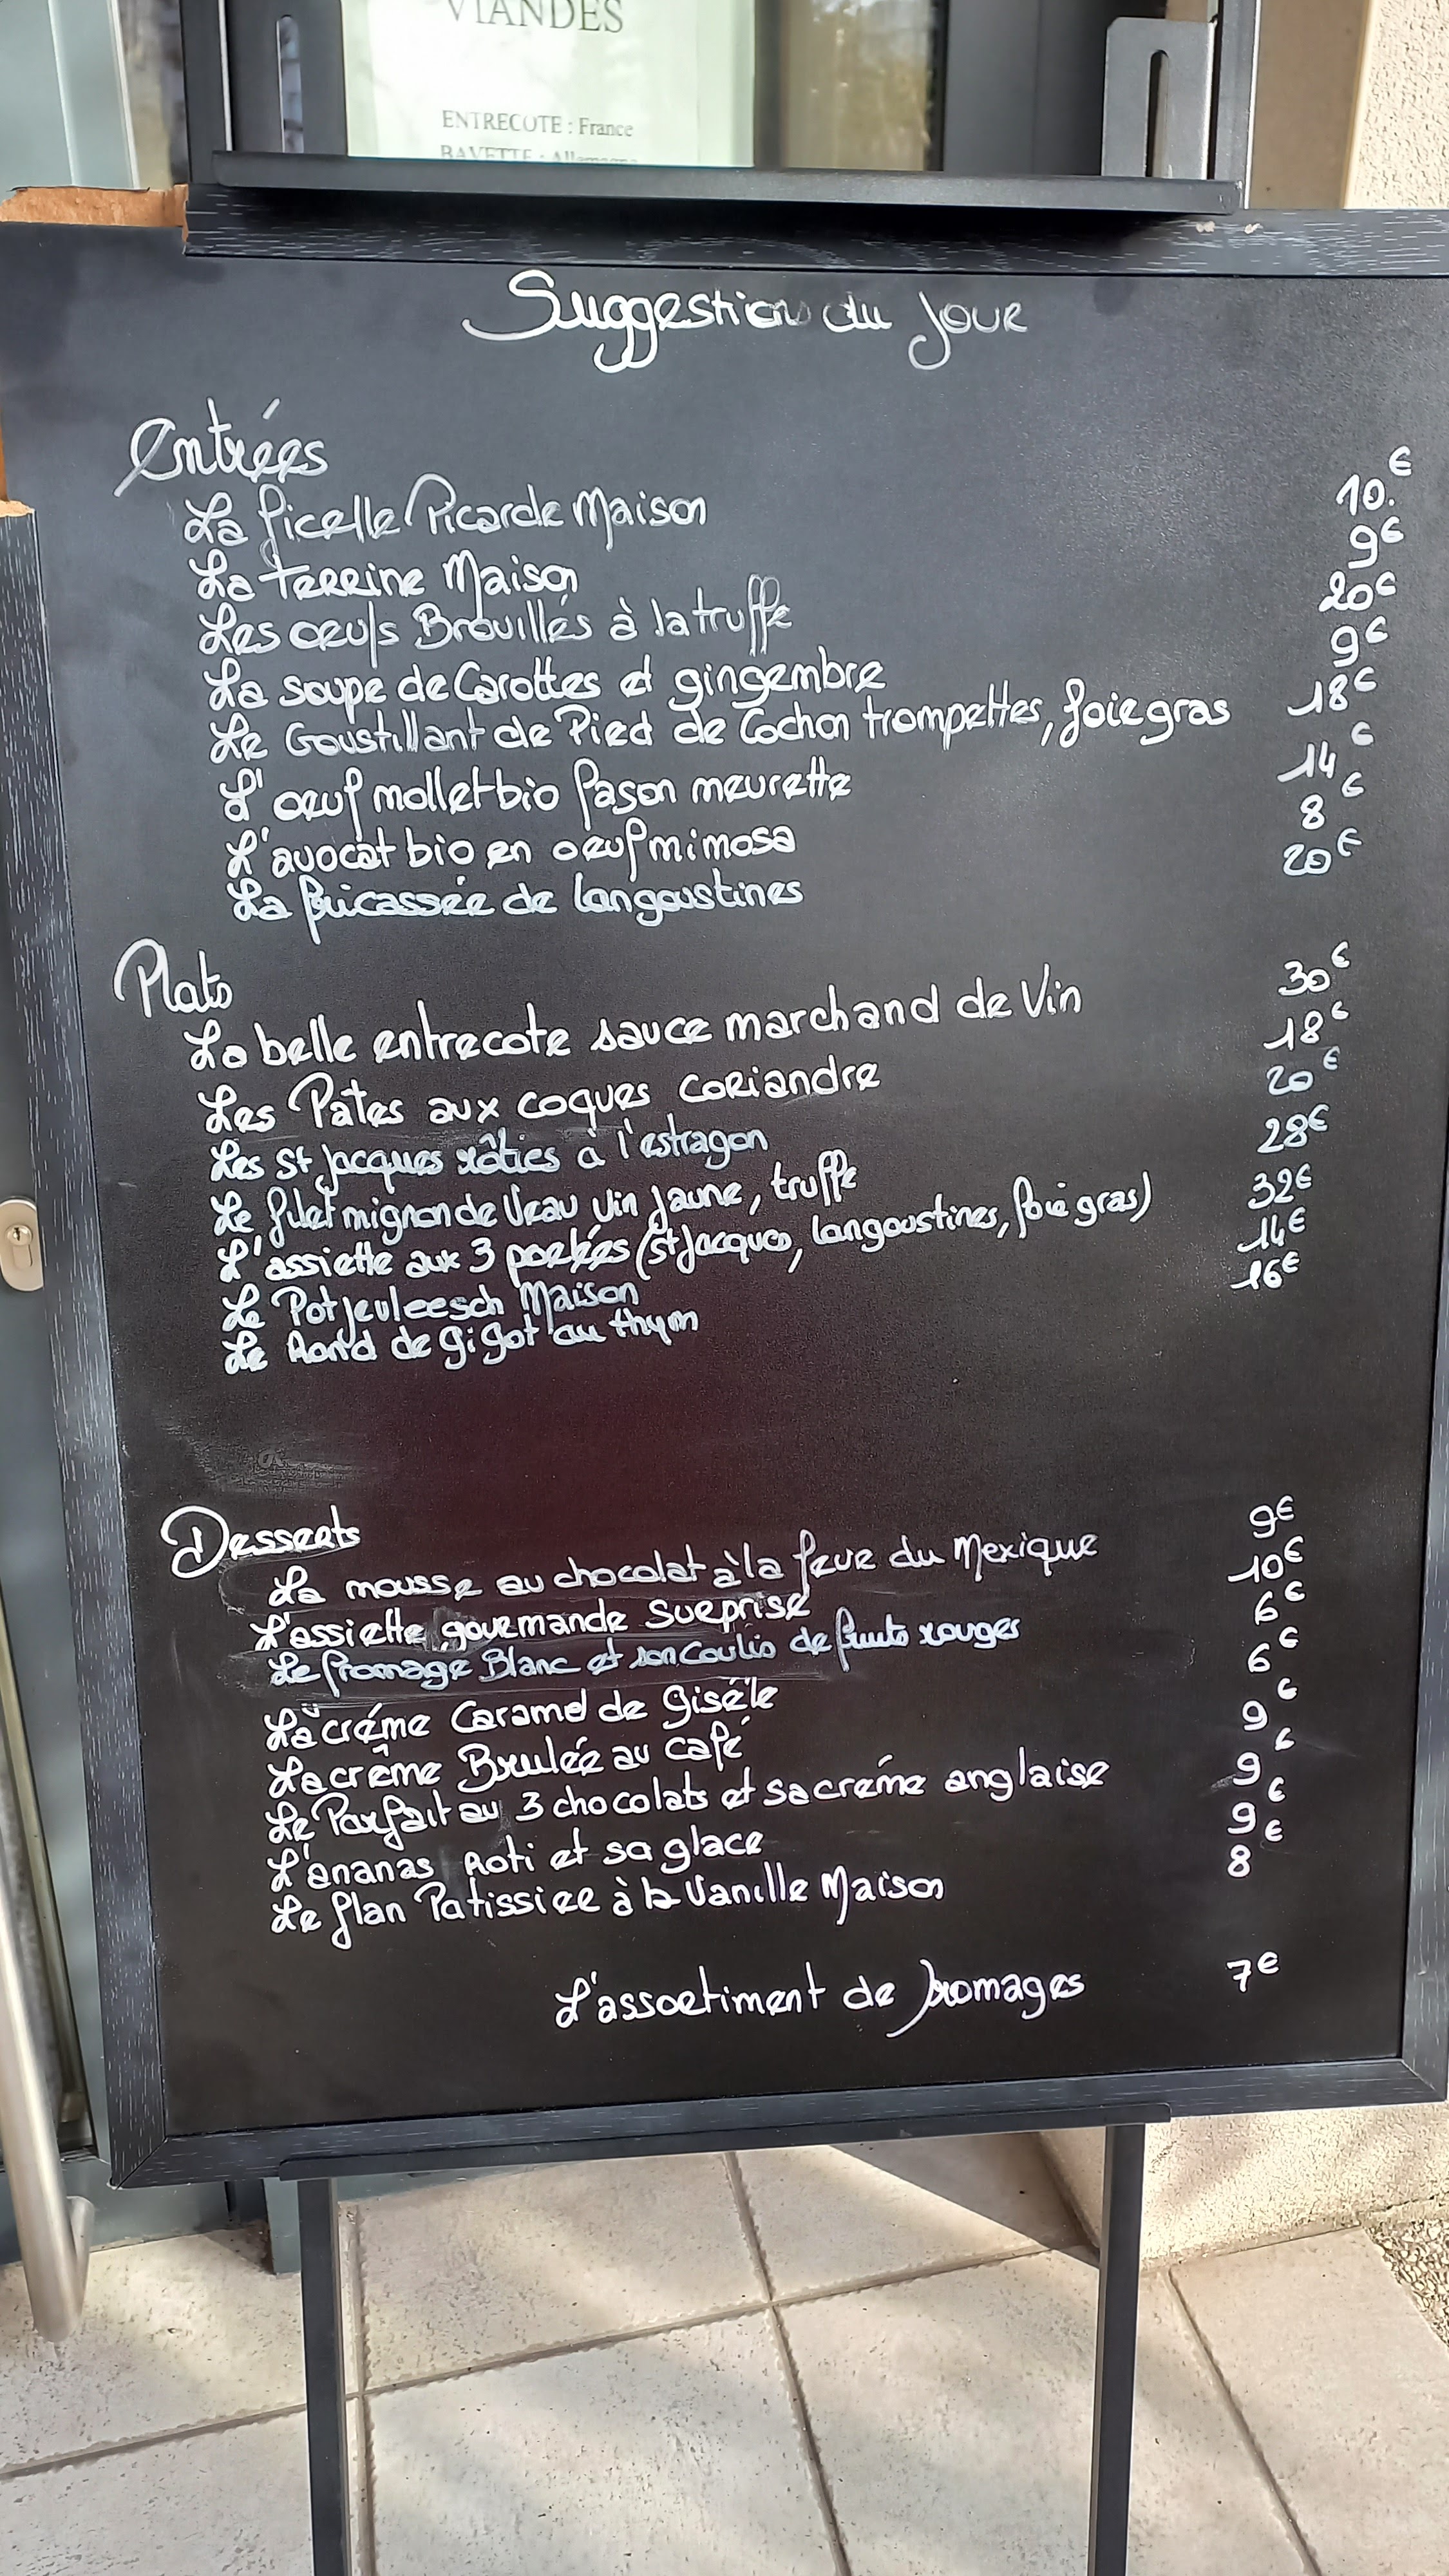 VIANDES
ENTRECOTE : France
BAVETTE : Allemagne
Suggestion du Jour
Entrées
La ficelle Picarde Maison 10.€
La terrine Maison 9€
Les œufs Brouillés à la truffe 20€
La soupe de Carottes et gingembre 9€
Le Croustillant de Pied de Cochon trompettes, foie gras 18€
L'œuf mollet bio façon meurette 14€
L'avocat bio en œuf mimosa 8€
La fricassée de langoustines 20€
Plats
La belle entrecote sauce marchand de Vin 30€
Les Pates aux coques coriandre 18€
Les St Jacques rôties à l'estragon 20€
Le filet mignon de Veau vin jaune, truffe 28€
L'assiette aux 3 poelées (St Jacques, langoustines, foie gras) 32€
Le Potjevleesch Maison 14€
Le Rond de gigot au thym 16€
Desserts
La mousse au chocolat à la feve du Mexique 9€
L'assiette gourmande surprise 10€
Le fromage Blanc et son Coulis de fruits rouges 6€
La créme Caramel de Giséle 6€
La crême Brulée au café 9€
Le Parfait au 3 chocolats et sa créme anglaise 9€
L'ananas Roti et sa glace 9€
Le flan Patissier à la Vanille Maison 8€
L'assortiment de fromages 7€